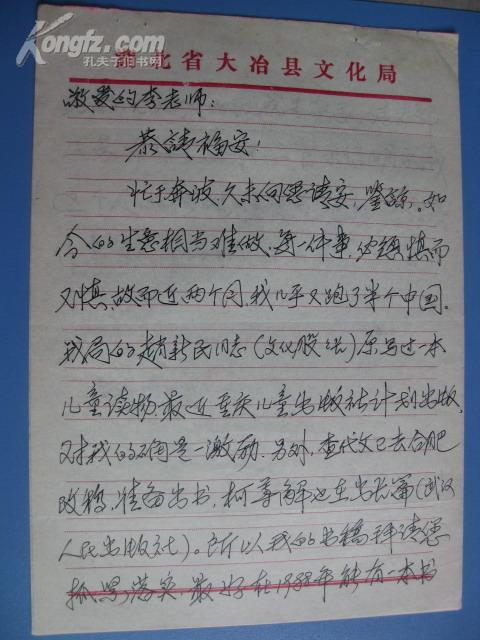 Kongfz.com
孔夫子旧书网
湖北省大冶县文化局
敬爱的李老师：
恭请福安！
忙于奔波，久未向您请安，鉴谅。如
今的生意相当难做，每一件事，必须慎而
又慎，故而近两个月，我几乎又跑了半个中国。
我局的赵新民同志（文化股长）原写过一本
儿童读物最近重庆儿童出版社计划出版，
对我的确是一激励。另外，查代文已去合肥
改稿，准备出书，柯尊解也在出长篇（武汉
人民出版社）。所以我的书稿拜请您
抓紧落实，最好在1988年能有一本书